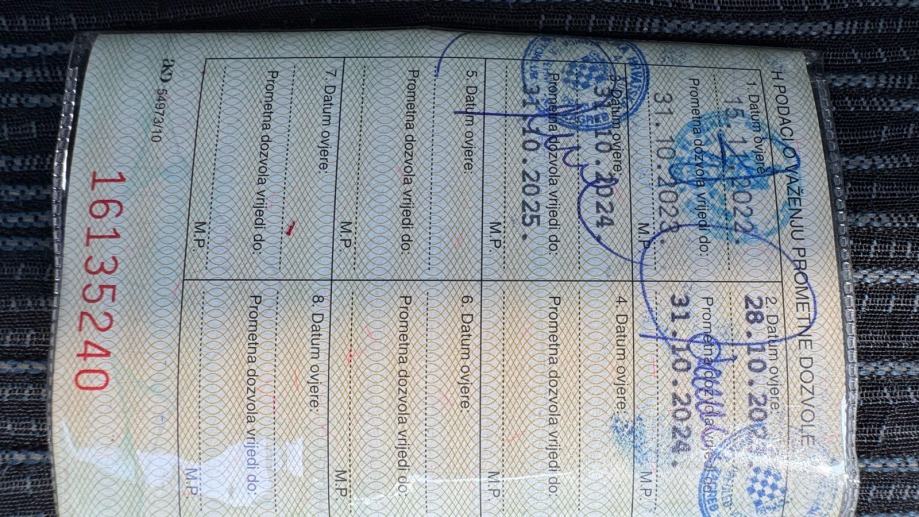 H PODACI O VAŽENJU PROMETNE DOZVOLE
1. Datum ovjere:
2022.
Prometna dozvola vrijedi do:
31.10.2023.
M.P.
2. Datum ovjere:
28.10.
Prometna dozvola vrijedi do:
31.10.2024.
M.P.
3. Datum ovjere:
31.10.2024.
Prometna dozvola vrijedi do:
31.10.2025.
M.P.
4. Datum ovjere:
Prometna dozvola vrijedi do:
M.P.
5. Datum ovjere:
Prometna dozvola vrijedi do:
M.P.
6. Datum ovjere:
Prometna dozvola vrijedi do:
M.P.
7. Datum ovjere:
Prometna dozvola vrijedi do:
M.P.
8. Datum ovjere:
Prometna dozvola vrijedi do:
M.P.
AKD 54973/10
16135240